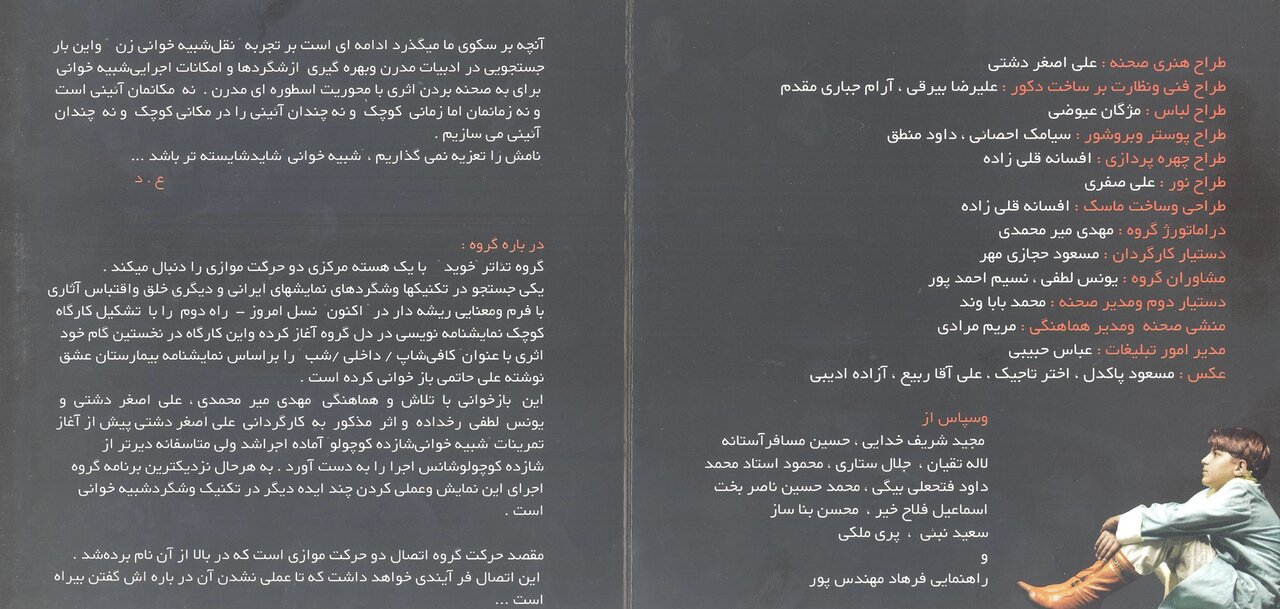 طراح هنری صحنه : علی اصغر دشتی
طراح فنی ونظارت بر ساخت دکور : علیرضا بیرقی ، آرام جباری مقدم
طراح لباس : مژگان عیوضی
طراح پوستر وبروشور : سیامک احصائی ، داود منطق
طراح چهره پردازی : افسانه قلی زاده
طراح نور : علی صفری
طراحی وساخت ماسک : افسانه قلی زاده
دراماتورژ گروه : مهدی میر محمدی
دستیار کارگردان : مسعود حجازی مهر
مشاوران گروه : یونس لطفی ، نسیم احمد پور
دستیار دوم ومدیر صحنه : محمد بابا وند
منشی صحنه ومدیر هماهنگی : مریم مرادی
مدیر امور تبلیغات : عباس حبیبی
عکس : مسعود پاکدل ، اختر تاجیک ، علی آقا ربیع ، آزاده ادیبی
وسپاس از
مجید شریف خدایی ، حسین مسافرآستانه
لاله تقیان ، جلال ستاری ، محمود استاد محمد
داود فتحعلی بیگی ، محمد حسین ناصر بخت
اسماعیل فلاح خیر ، محسن بنا ساز
سعید نبئی ، پری ملکی
و
راهنمایی فرهاد مهندس پور
آنچه بر سکوی ما میگذرد ادامه ای است بر تجربه "نقل‌شبیه خوانی زن" واین بار
جستجویی در ادبیات مدرن وبهره گیری ازشگردها و امکانات اجرایی‌شبیه خوانی
برای به صحنه بردن اثری با محوریت اسطوره ای مدرن . نه مکانمان آئینی است
و نه زمانمان اما زمانی کوچک و نه چندان آئینی را در مکانی کوچک و نه چندان
آئینی می سازیم .
نامش را تعزیه نمی گذاریم ، "شبیه خوانی"شایدشایسته تر باشد ...
ع . د
در باره گروه :
گروه تئاتر "خوید" با یک هسته مرکزی دو حرکت موازی را دنبال میکند .
یکی جستجو در تکنیکها وشگردهای نمایشهای ایرانی و دیگری خلق واقتباس آثاری
با فرم ومعنایی ریشه دار در "اکنون" نسل امروز - راه دوم را با تشکیل کارگاه
کوچک نمایشنامه نویسی در دل گروه آغاز کرده واین کارگاه در نخستین گام خود
اثری با عنوان"کافی‌شاپ / داخلی /شب" را براساس نمایشنامه بیمارستان عشق
نوشته علی حاتمی باز خوانی کرده است .
این بازخوانی با تلاش و هماهنگی مهدی میر محمدی ، علی اصغر دشتی و
یونس لطفی رخداده و اثر مذکور به کارگردانی علی اصغر دشتی پیش از آغاز
تمرینات"شبیه خوانی‌شازده کوچولو"آماده اجراشد ولی متاسفانه دیرتر از
شازده کوچولوشانس اجرا را به دست آورد . به هرحال نزدیکترین برنامه گروه
اجرای این نمایش وعملی کردن چند ایده دیگر در تکنیک وشگردشبیه خوانی
است .
مقصد حرکت گروه اتصال دو حرکت موازی است که در بالا از آن نام برده‌شد .
این اتصال فر آیندی خواهد داشت که تا عملی نشدن آن در باره اش گفتن بیراه
است ...